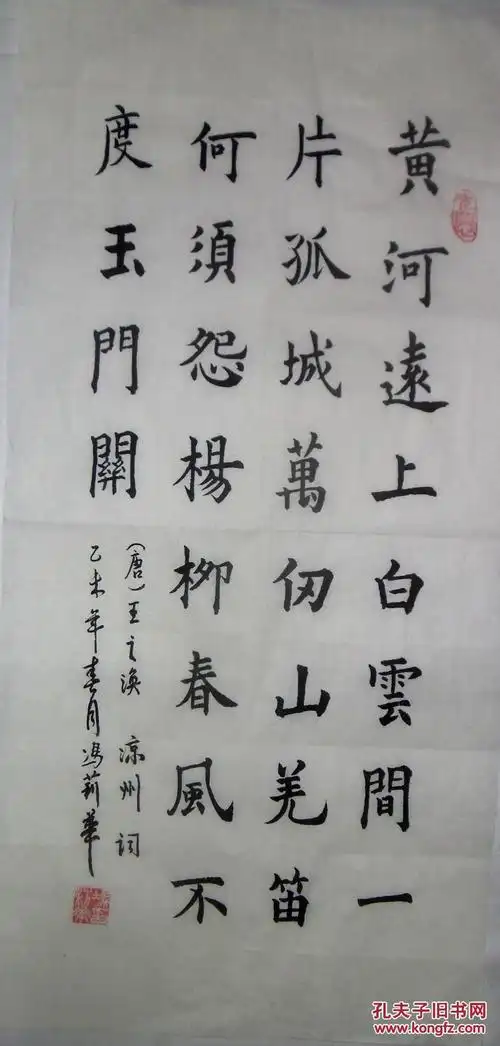 黃河遠上白雲間一
片孤城萬仞山羌笛
何須怨楊柳春風不
度玉門關
（唐）王之渙 涼州詞
乙未年春月馮莉華
孔夫子旧书网
www.kongfz.com